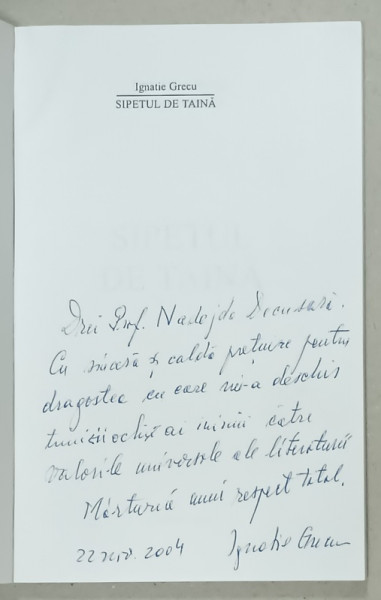 Ignatie Grecu
SIPETUL DE TAINĂ
Drei Prof. Nadejda
Cu sinceră și caldă prețuire pentru
dragostea cu care mi-a deschis
ochii ai inimii către
valorile universale ale literaturii
Mărturia unui respect total.
22 nov. 2004 Ignatie Grecu